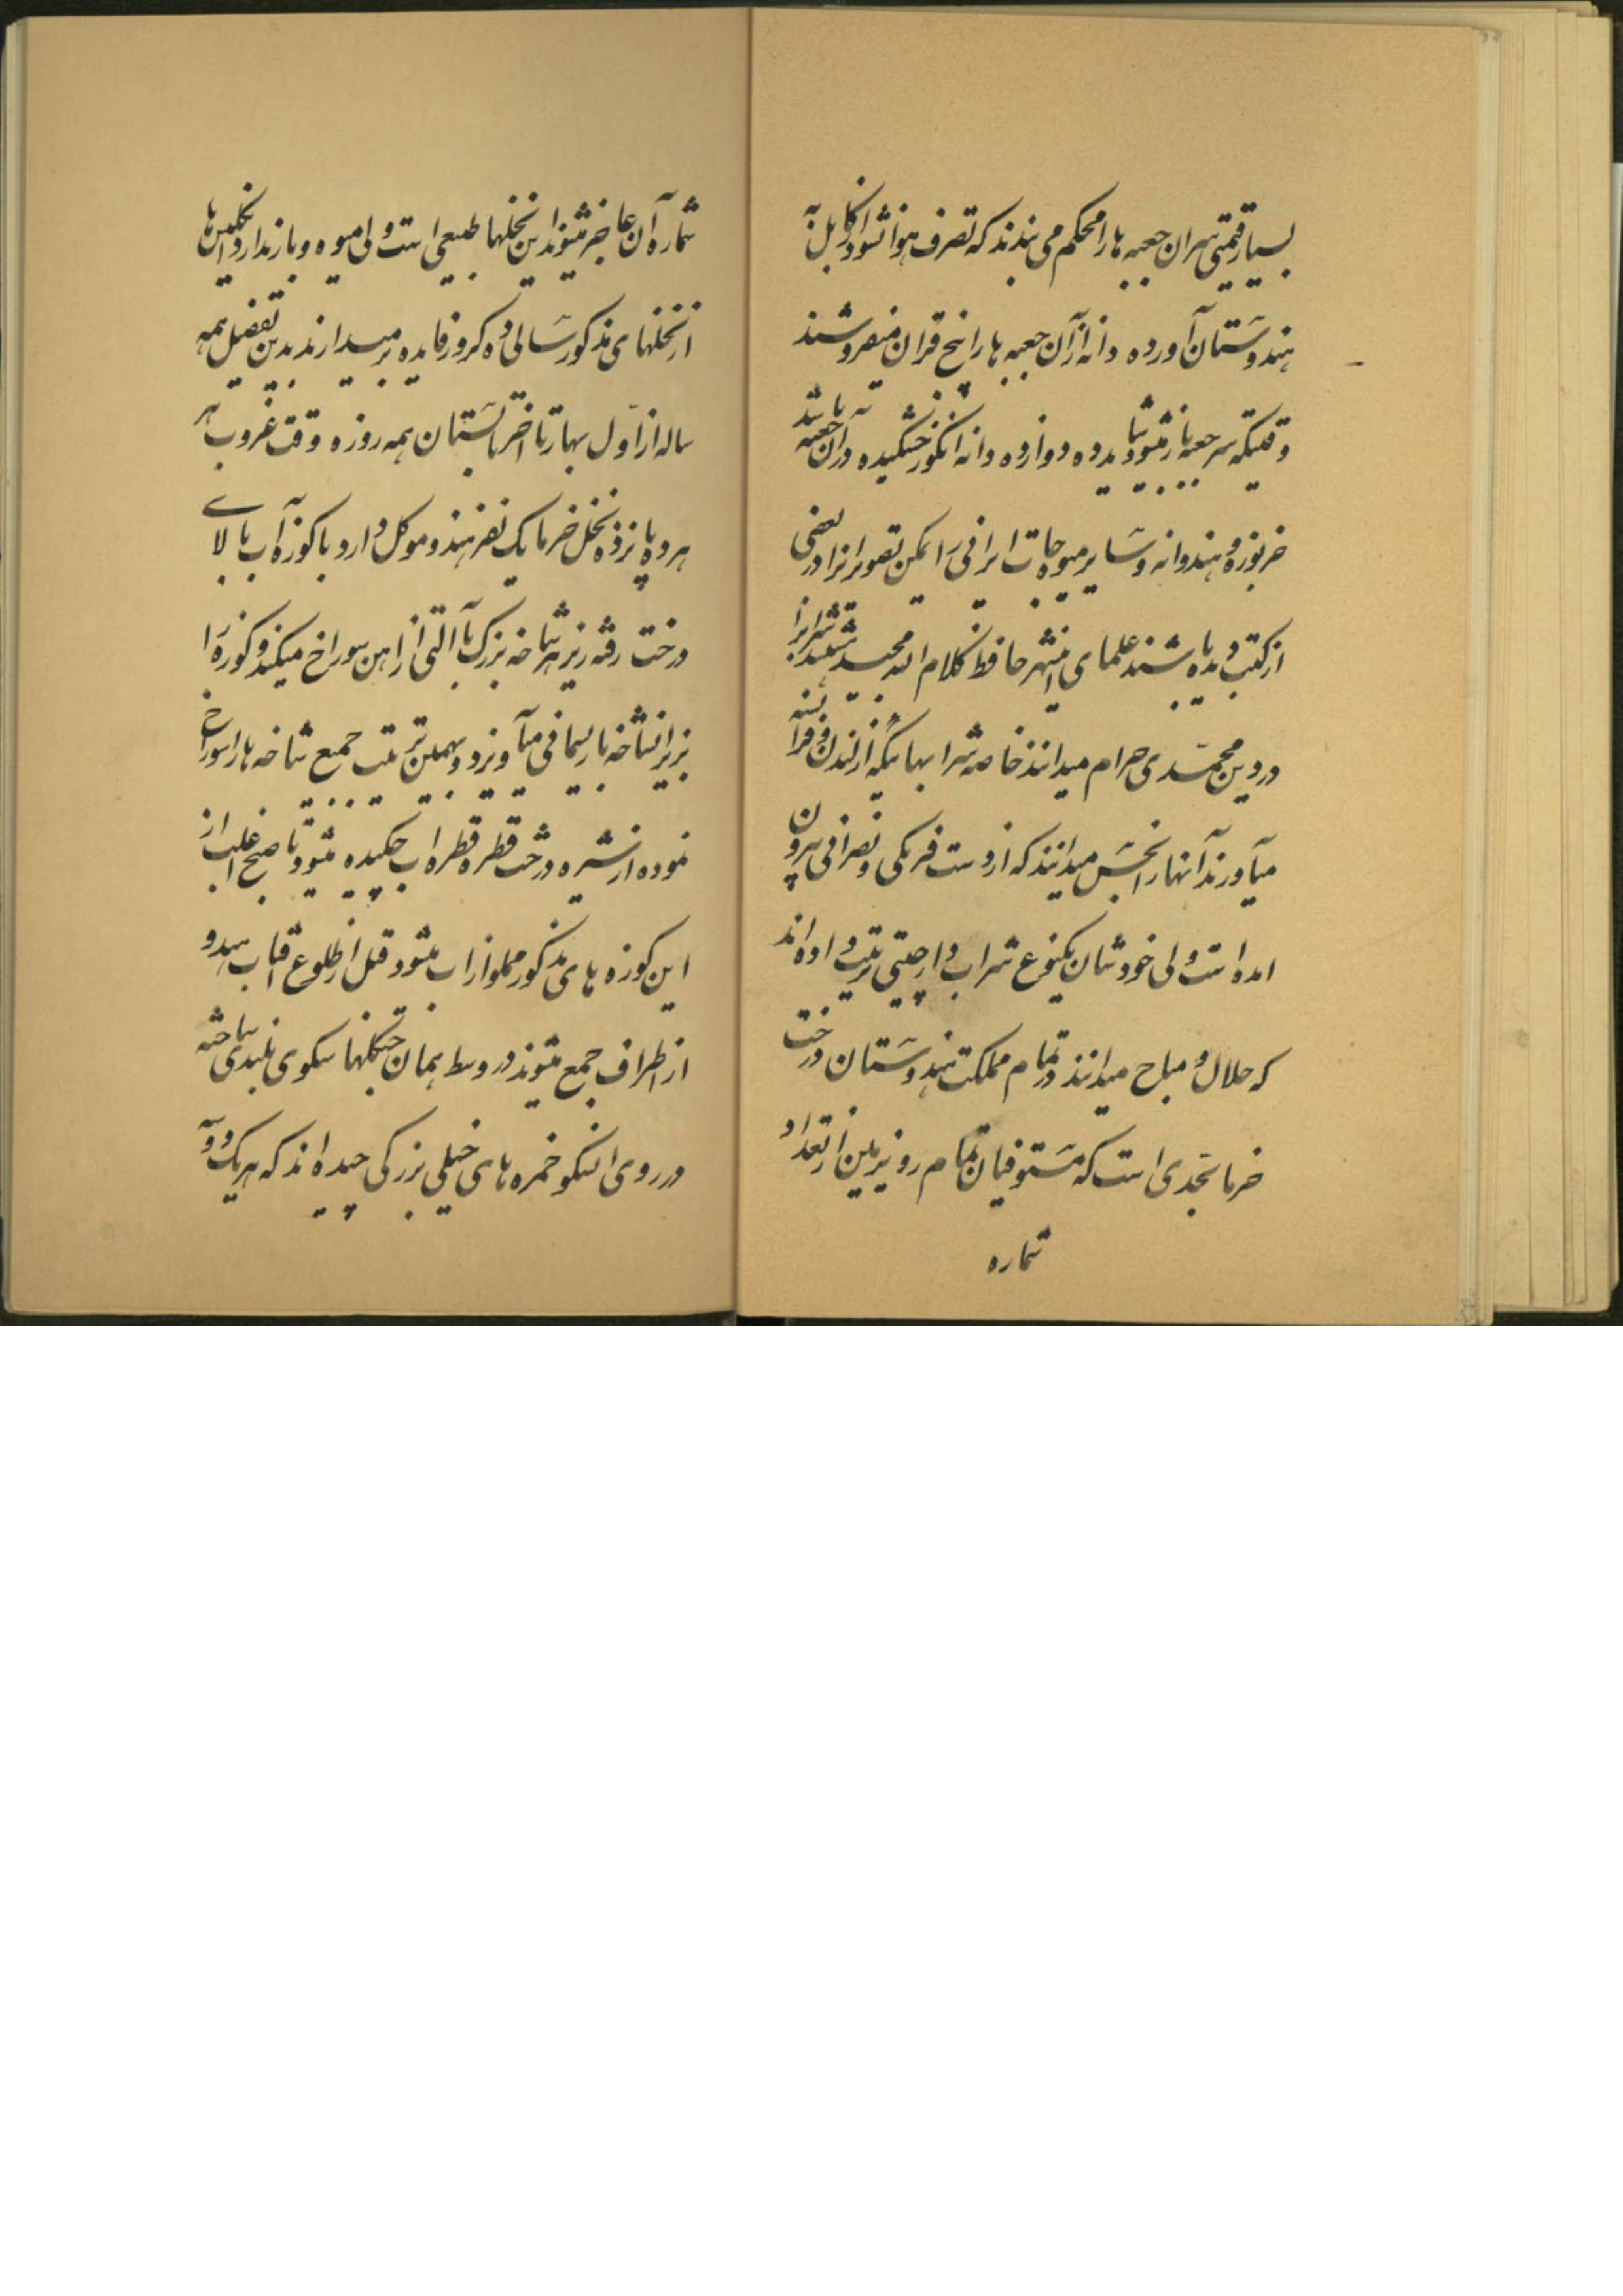 بسیار قیمتی سران جعبه ها را محکم می بندند که تصرف هوا نشود از کابل به
هندوستان آورده دانه از آن جعبه ها را پنج قران میفروشند
وقتیکه سر جعبه باز میشود شاید ده دوازده دانه انکور خشکیده در ان جعبه باشد
خربوزه و هندوانه و سایر میوه جات ایرانی را لیکن تصویر انرا در بعضی
از کتب دیده باشند علمای اینشهر حافظ کلام الله مجید شرابرا
در دین محمّدی حرام میدانند خاصه شرابهائیکه از لندن و فرانسه
میآورند آنها را نجس میدانند که از دست فرنکی و نصرانی بیرون
امده است ولی خودشان یکنوع شراب دارچینی ترتیب داده اند
که حلال و مباح میدانند در تمام مملکت هندوستان درخت
خرما بحّدی است که مستوفیان تمام روی زمین از تعداد
شماره
شماره آن عاجز میشوند این نخلها طبیعی است ولی میوه و بار ندارد انکلیس ها
از نخلهای مذکور سالی ده کرور فایده بر میدارند بدین تفضیل همه
ساله از اول بهار تا اخر تابستان همه روزه وقت غروب هر
هر ده پانزده نخل خرما یک نفر هندو موکل دارد با کوزه آب بالای
درخت رفته زیر هر شاخه بزرک با التی از اهن سوراخ میکند و کوزه را
بزیر انشاخه با ریسمانی میآویزد و بهمین ترتیب جمیع شاخه ها را سوراخ
نموده از شیره درخت قطره قطره اب چکیده میشود تا صبح اغلب از
این کوزه های مذکور مملو از اب میشود قبل از طلوع افتاب هندو
از اطراف جمع میشوند در وسط همان جنکلها سکوی بلندی ساخته
در روی انسکو خمره های خیلی بزرکی چیده اند که هریک دویه